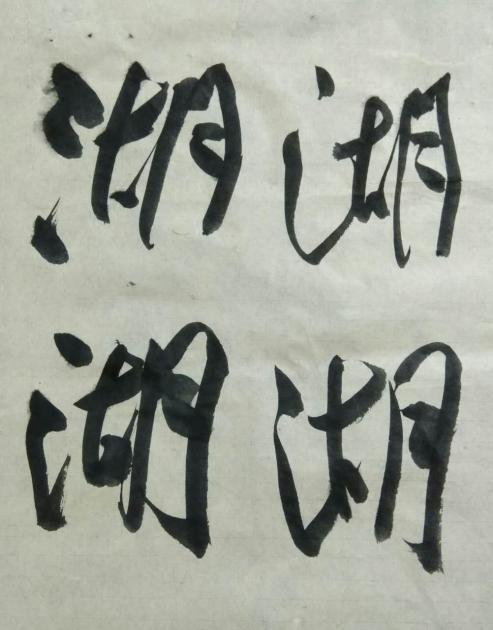 湖湖
湖湖